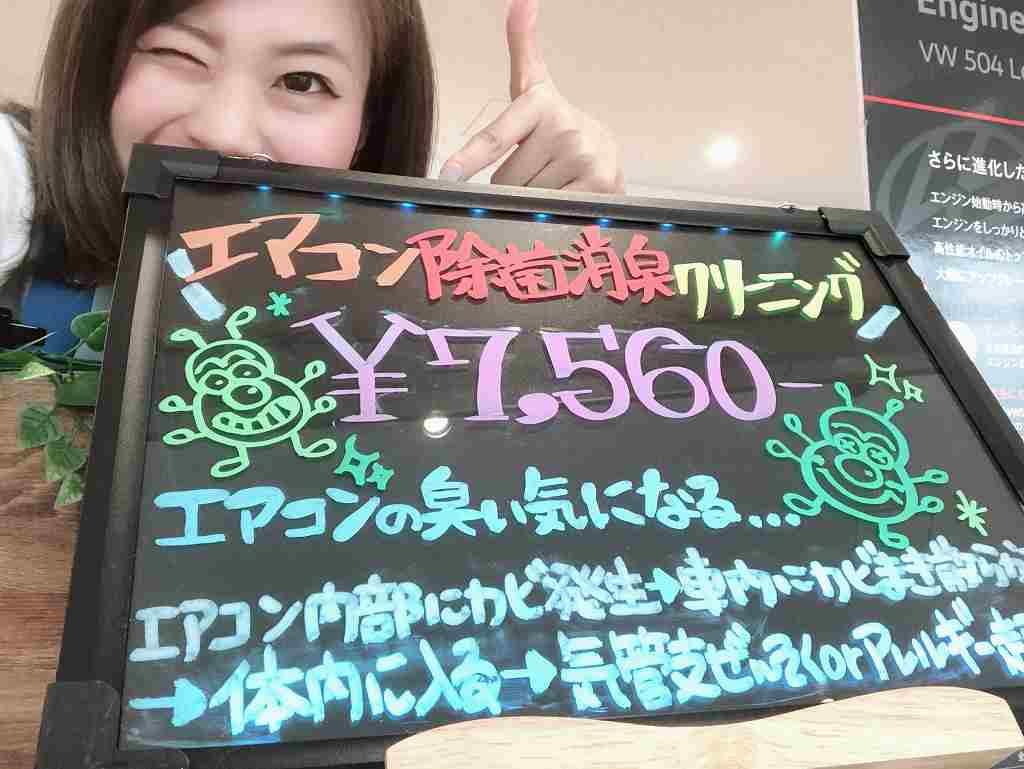 エアコン除菌消臭クリーニング
¥7,560-
エアコンの臭い気になる...
エアコン内部にカビ発生→車内にカビまき散らか
→体内に入る→気管支ぜんそくorアレルギー
Engine
VW 504 L
さらに進化した
エンジン始動時から
エンジンをしっかりと
高性能オイルのトッ